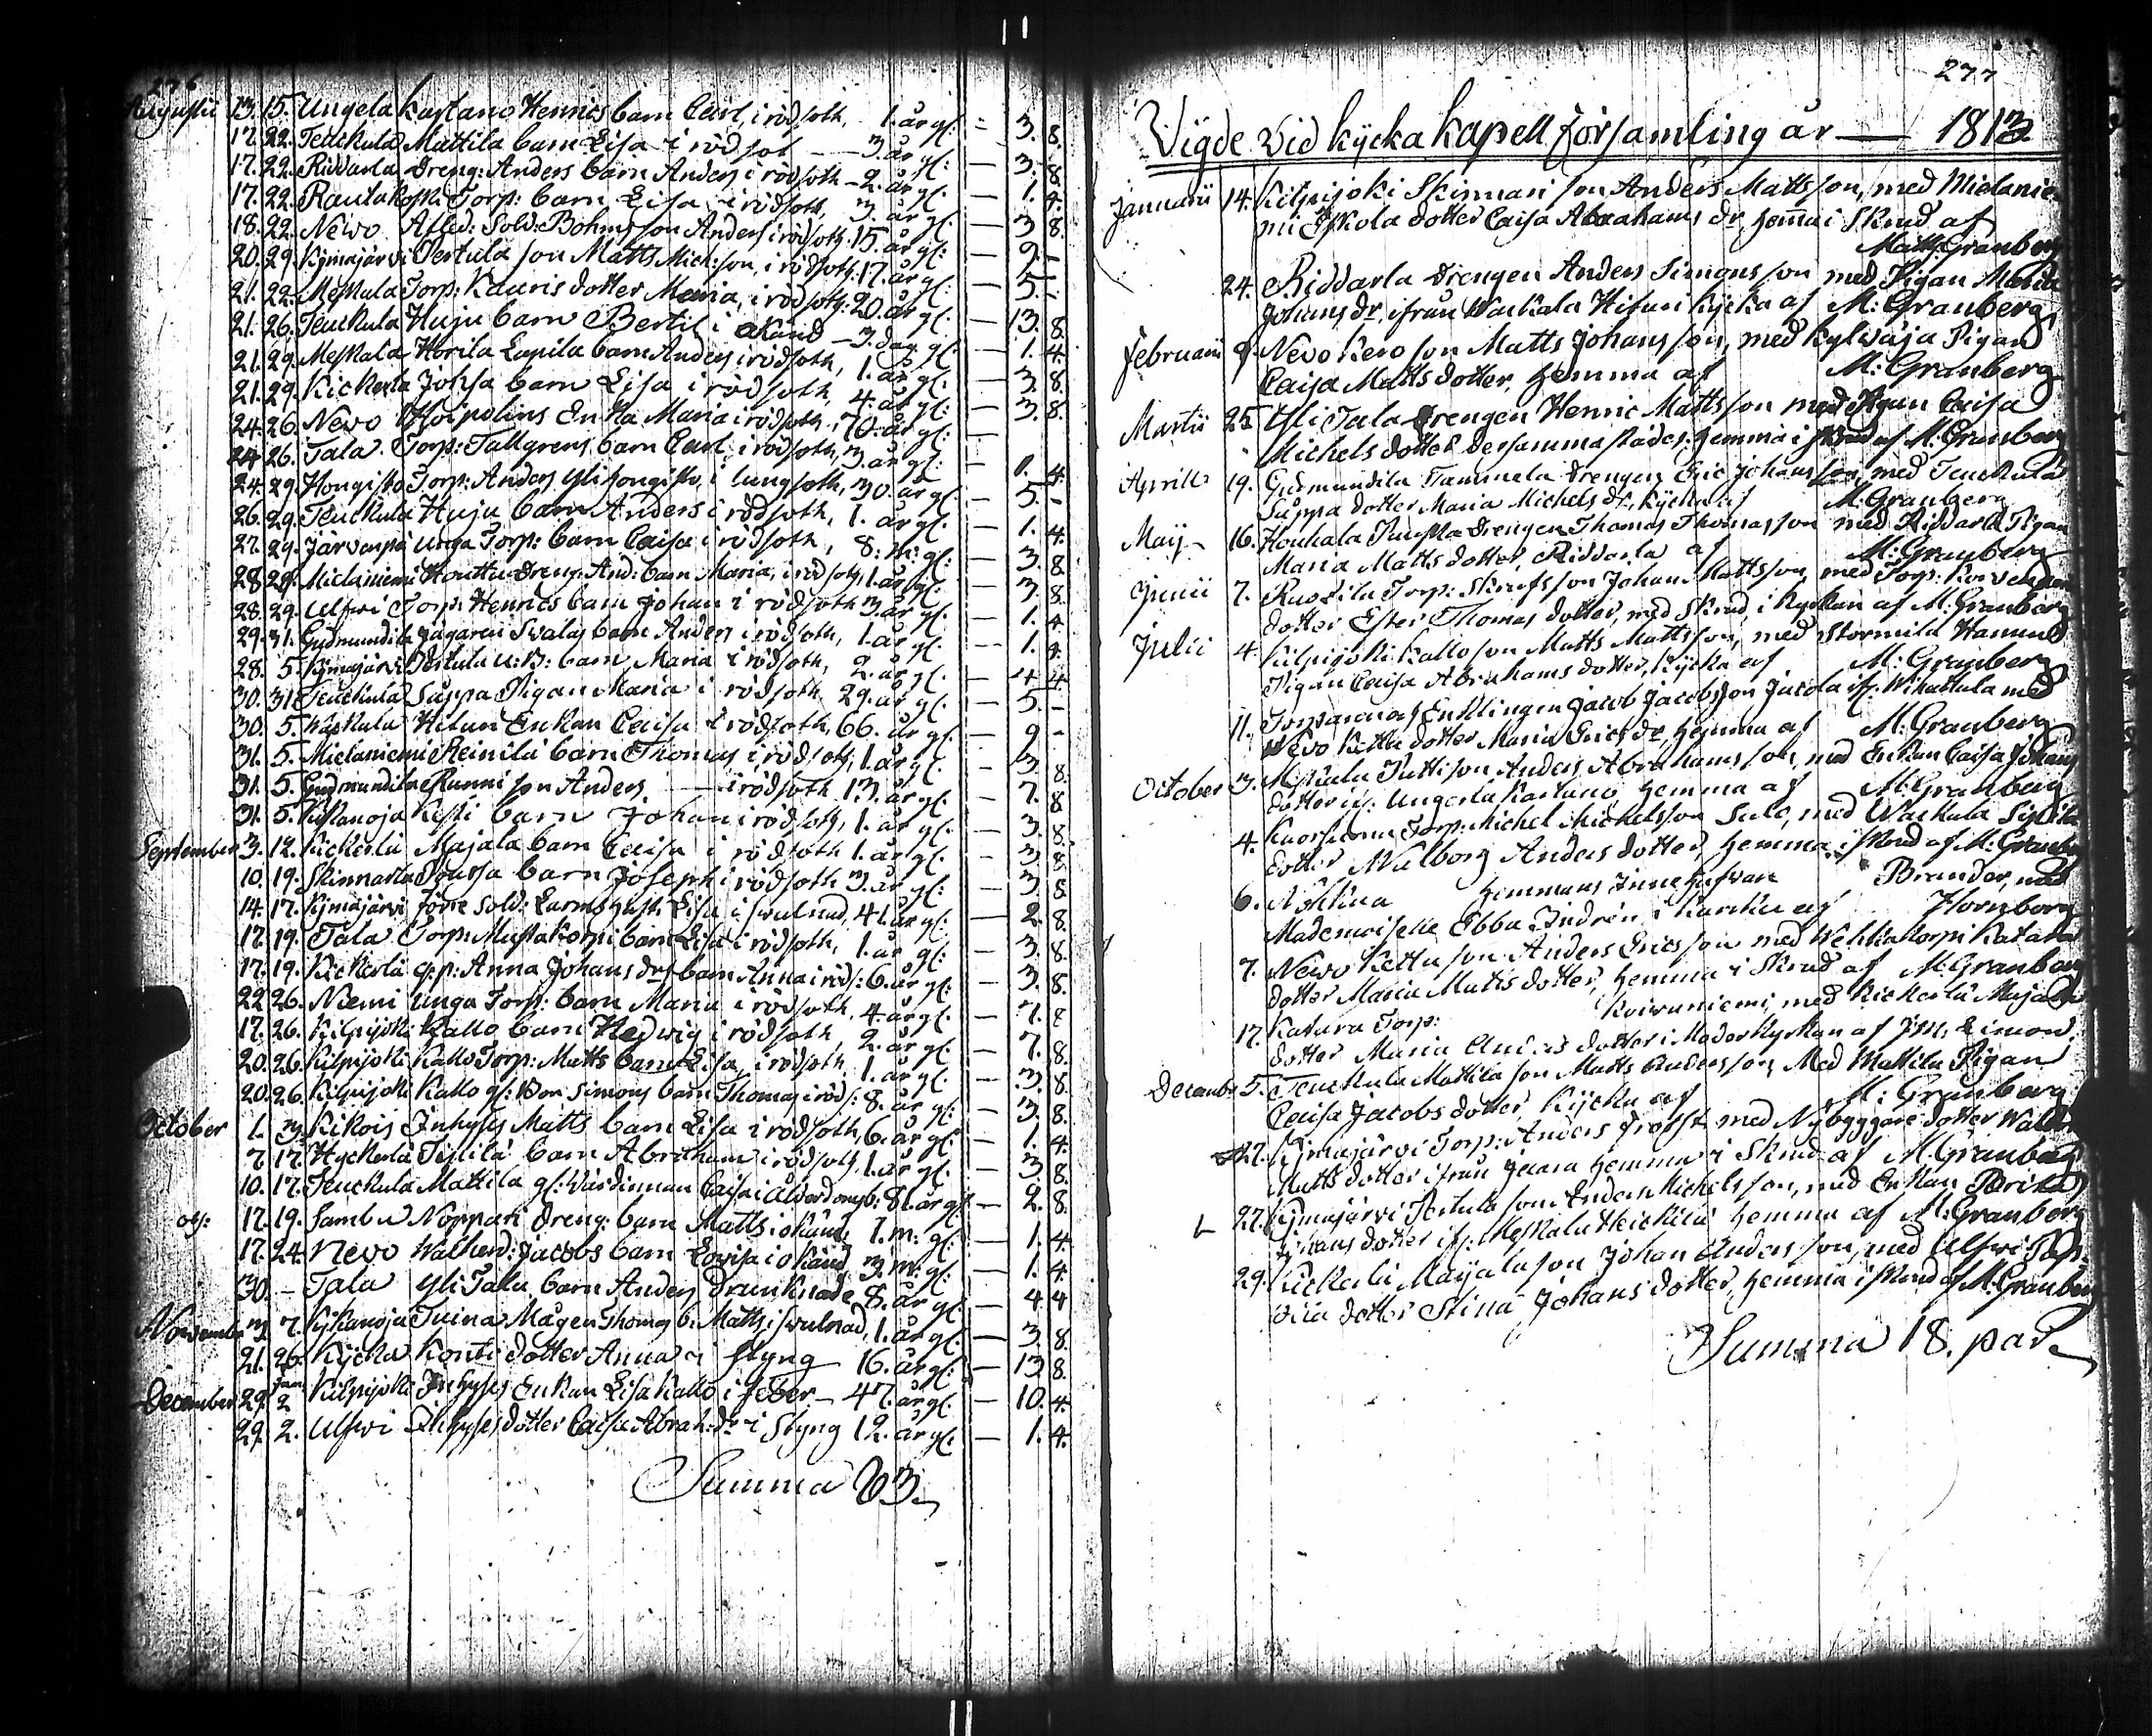 276
Augusti 13. 15. Ungela Kartano Henrics barn Carl, i rödsoth, 1. år gl: – 3. 8.
17. 22. Teuckula Mattila barn Lisa i rödsot — 3. år gl: – 3. 8.
17. 22. Riddarla Dreng: Anders barn Anders i rödsoth – 2. år gl: – 1. 4.
17. 22. Rautakoski Torp: barn Lisa i rödsoth, 3. år gl: – 3. 8.
18. 22. Newo Afled: Sold: Bohms son Anders i rödsoth: 15. år gl: – 9. –
20. 29. Kijmäjärvi Pertula son Matts Mich:son, i rödsoth: 17. år gl: – 5. –
21. 22. Meskala Torp: Lauris dotter Maria, i rödsoth: 20. år gl: – 13. 8.
21. 26. Teuckula Huju barn Bertil i okänd – 3. dag gl: – 1. 4.
21. 29. Meskala Horila Lapila barn Anders i rödsoth, 1. år gl: – 3. 8.
21. 29. Kickerla Johsa barn Lisa i rödsoth, 4. år gl: – 3. 8.
24. 26. Newo Enka Maria i rödsoth, 70. år gl: –
24. 26. Tala Torp: Tallgrens barn Carl i rödsoth, 3. år gl: – 1. 4.
24. 29. Hongisto Torp: Anders Ylihongisto, i lungsoth, 30. år gl: – 5. –
26. 29. Teuckula Huju barn Anders i rödsoth, 1. år gl: – 1. 4.
27. 29. Järvenpä unga Torp: barn Caisa i rödsoth, 8. m: gl: – 3. 8.
28. 29. Mielaniemi Houttu Dreng And: barn Maria, i rödsoth, 1. år gl: – 3. 8.
28. 29. Ulfwi Torp: Henrics barn Johan i rödsoth 3. år gl: – 1. 4.
29. 31. Gudmundila Jägaren Svalas barn Anders i rödsoth, 1. år gl: – 1. 4.
28. 5. Kijmajärvi Pertula u: B: barn Maria i rödsoth, 2. år gl: – 4. 4.
30. 31. Teuckula Suppa Pigan Maria i rödsoth 29. år gl: – 5. –
30. 5. Waskala Hilun Enkan Caisa i rödsoth, 66. år gl: – 9 –
31. 5. Mielaniemi Reinilä barn Thomas i rödsoth, 1. år gl: – 3. 8.
31. 5. Gudmundila Runni son Anders — i rödsoth 13. år gl: – 7. 8.
31. 5. Kijkanoja Kesti barn Johan i rödsoth, 1. år gl: – 3. 8.
September 3. 12. Kickerlä Majala barn Caisa i rödsoth 1. år gl: – 3. 8.
10. 19. Skinnarla Pousa barn Joseph i rödsoth 3. år gl: – 3. 8.
14. 17. Kijmäjärvi förre Sold: Larms hust: Lisa i svulnad, 41. år gl: — 2. 8.
17. 19. Tala Torp: Mustakorpi barn Lisa i rödsoth, 1. år gl: – 3. 8.
17. 19. Kickerlä Anna Johans drs barn Anna i röds: 6. år gl: – 3. 8.
22. 26. Niemi unga Torp: barn Maria i rödsoth, 4. år gl: – 7. 8
17. 26. Kilpijoki Kallo barn Hedwig i rödsoth, 2. år gl: – 7. 8.
20. 26. Kilpijoki Kallo Torp: Matts barn Lisa i rödsoth, 1. år gl: – 3. 8.
20. 26. Kilpijoki Kallo gl: Bon Simons barn Thomas i röds: 8. år gl: – 3. 8.
October 1. 3. Kikois Inhyses Matts barn Lisa i rödsoth, 6. år gl: – 1. 4.
7. 17. Kyckerlä Tijlilä barn Abraham i rödsoth, 1. år gl: – 3. 8.
10. 17. Teuckula Mattila gl: Värdinnan Caisa i ålderdomsb: 81. år gl: – 2. 8.
obs: 17. 19. Sambu Noppari Dreng: barn Matts i okänd, 1. m: gl: – 1. 4.
17. 24. Nevo Walherd: Jacobs barn Lovisa i okänd, 3. m: gl: – 1. 4.
30. – Tala Yli Tala barn Anders drunknade, 8. år gl: – 4. 4
November 3. 7. Kijkanoja Tuina Mågen Thomas b: Matts i svulnad, 1. år gl: – 3. 8.
21. 26. Kijcka Konti dotter Anna i styng 16. år gl: – 13. 8.
Jan:
December 29. 2. Kilpijoki Inhyses Enkan Lisa Kallo i feber – 47. år gl: – 10. 4.
29. 2. Ulfwi Inhyses dotter Caisa Abrah: dr i styng 12. år gl: – 1. 4.
Summa 63.
277
Vigde vid Kijcka Kapell församling år — 1813.
Januarii 14. Kilpijoki Skinnari son Anders Mattsson, med Mielanie-
mi Eskola dotter Caisa Abrahams dr, hemma i skrud af
Matts: Granberg
24. Riddarla Drengen Anders Simonsson med Pigan Maria
Johans dr, ifrån Waskala Hilun Kijcka af M: Granberg
Februarii 9. Nevo Kero son Matts Johansson, med Kylwäjä Pigan
Caisa Matts dotter, hemma af M: Granberg
Martii 25. Yli Tala Drengen Henric Mattsson med Pigan Caisa
Michels dotter dersammastädes, hemma i skrud af M: Granberg
Aprill 19. Gudmundila Tammela Drengen Eric Johansson, med Teuckula
Suppa dotter Maria Michels dr, Kijcka af M: Granberg
Maij 16. Houhala Drengen Thomas Thomasson med Riddarla Pigan
Maria Matts dotter, Riddarla af M: Granberg
Junii 7. Ruotila Torp: son Johan Mattsson, med Torp:
dotter Ester Thomas dotter, med skrud, i Kyrkan af M: Granberg
Julii 4. Kilpijoki Kallo son Matts Mattsson, med Stormila
Pigan Caisa Abrahams dotter, Kijcka af M: Granberg
11. Enklingen Jacob Jacobsson Jacola if: Wihattula med
Nevo Kettu dotter Maria Erics dr, hemma af M: Granberg
October 3. Meskala Putti son Anders Abrahamsson, med Enkan Caisa Johans
dotter if: Ungerla Kartano hemma af M: Granberg
4. Torp: Michel Michelsson Salo, med Waskala
dotter Walborg Anders dotter, hemma i skrud af M: Granberg
6. Hemmans Innehafvare Brander, med
Mademoiselle Ebba Indrén i Karcku af Hornborg
7. Newo Kettu son Anders Ericsson med Wehkakorpi Katara
dotter Maria Matts dotter, hemma i skrud af M: Granberg
17. Katara Torp: Koivuniemi, med Kickerlä Majala
dotter Maria Anders dotter i Moderkyrkan af
Decemb: 5. Teuckula Mattila son Matts Andersson, med Mattila Pigan
Caisa Jacobs dotter Kijcka af M: Granberg
27. Kijmajärvi Torp: Anders Frosst med Nybyggare dotter
Matts dotter ifrån Jaara hemma i skrud af M: Granberg
27. Kijmajärvi Pertula son Anders Michelsson, med Enkan Brita
Johans dotter if: Meskala Heickilä hemma af M: Granberg
29. Kickerlä Majala son Johan Andersson, med Ulfwi
dotter Stina Johans dotter, hemma i skrud af M: Granberg
Summa 18. par.